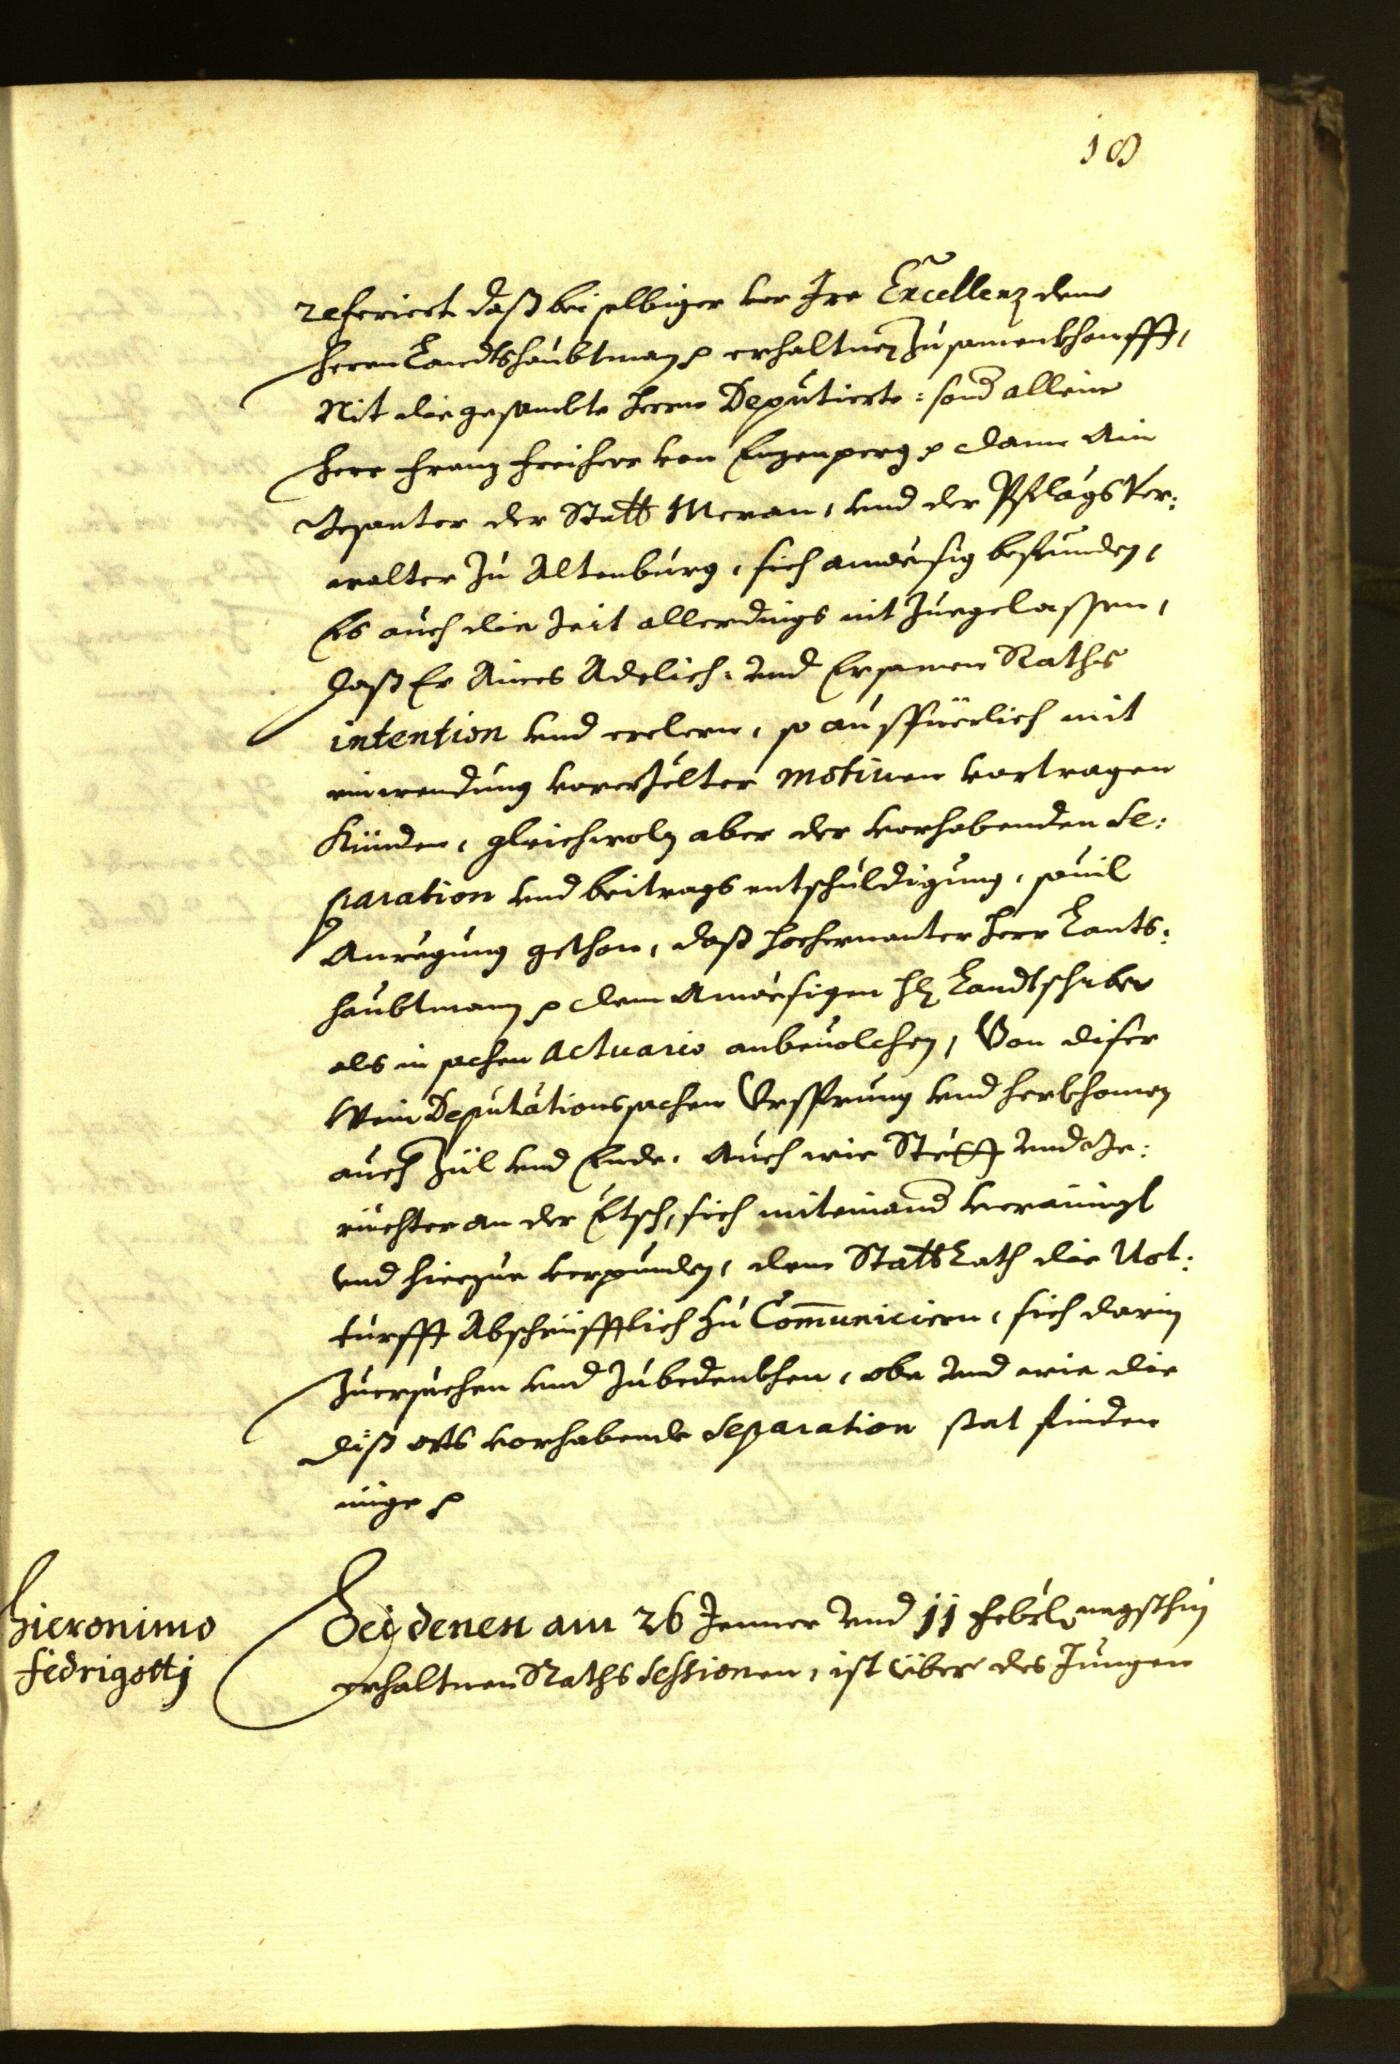 18
referiert daß bei selbiger vor Ire Excellenz dem
herrn Landtshaubtman p erhaltnen Zusamenkhonfft,
Nit die gesambte herrn Deputierte: sond allein
herr Franz Freiherr von Enzenperg p dann Ain
Gesanter der Statt Meran, vnd der Pflägs Ver:
walter Zu Altenburg, sich anwesig befunden,
Es auch die Zeit allerdings nit Zuegelassen,
daß Er Aines Adelich: vnd Ersamen Raths
intention vnd , so ausfüerlich mit
einwendung vorerzelter motiuen vortragen
künden, gleichwoln aber der vorhabenden Se:
paration vnd beitrags entschuldigung, souil
Anregung gethon, daß hochernanter Herr Lants:
haubtmann p dem Anwesigen hl Landtschreiber
als in sachen Actuario anbeuolchen, Von diser
Wein Deputations sachen Vrsprung vnd herkhomen
auch Zül vnd Ende. Auch wie Stett vnd Ge:
richter an der Etsch, sich miteinand verainigt
vnd hierzue verpunden, dem Statt Rath die Not:
turfft Abschrüfftlich zu Com̄uniciern, sich darin
Zuersuchen vnd Zubedenkhen, obe vnd wie die
diß orts vorhabende Separation stat finden
müge p
Hieronimo
Fedrigottj
Bei denen am 26 Jenner vnd 11 Febr negsthin
erhaltnen Raths Sessionen, ist über des Jungen